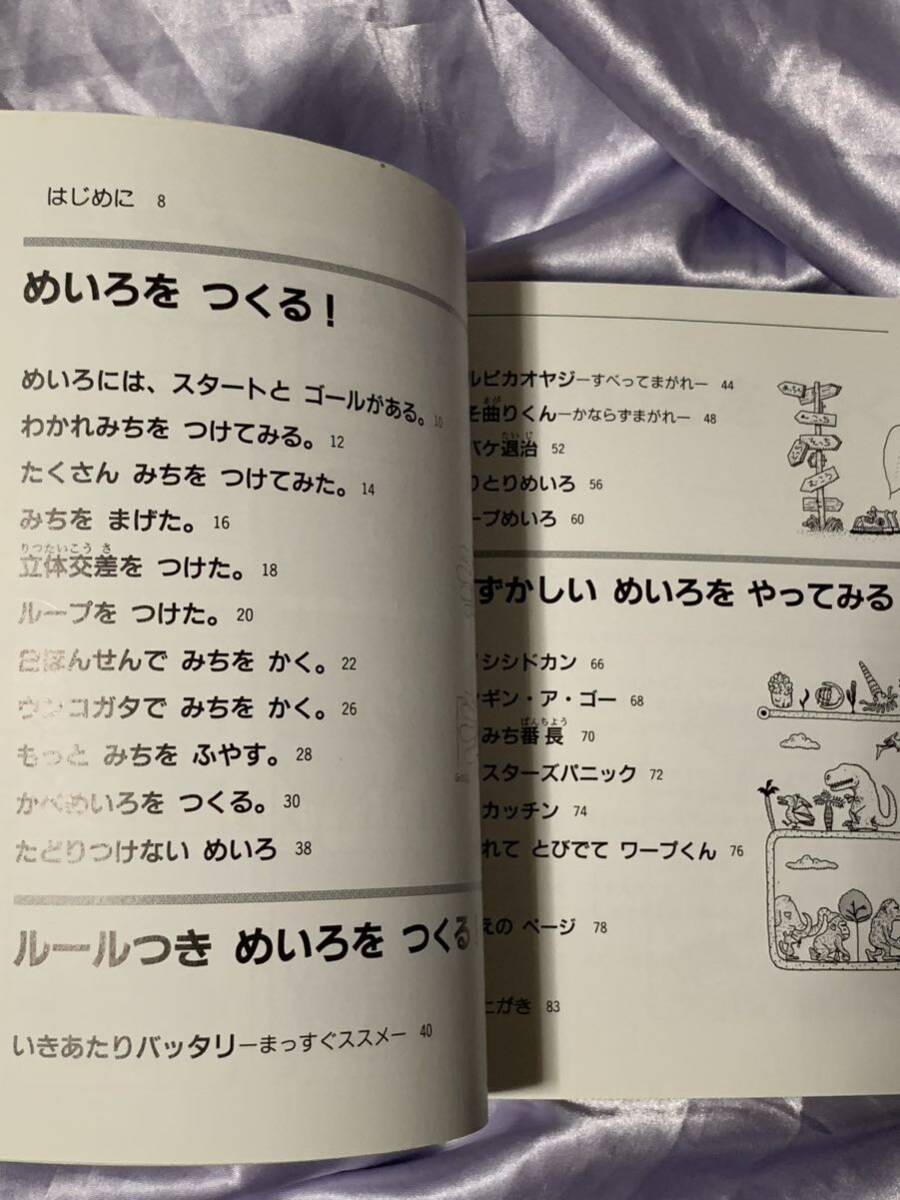 はじめに 8
めいろを つくる!
めいろには、スタートと ゴールがある。10
わかれみちを つけてみる。12
たくさん みちを つけてみた。14
みちを まげた。16
立体交差を つけた。18
りったいこうさ
ループを つけた。20
2ほんせんで みちを かく。22
ウンコガタで みちを かく。26
もっと みちを ふやす。28
かべめいろを つくる。30
たどりつけない めいろ 38
ルールつき めいろを つくる
いきあたりバッタリーまっすぐススメー 40
ルピカオヤジーすべってまがれー 44
そ曲りくんーかならずまがれー 48
バケ退治 52
たいじ
りとりめいろ 56
ープめいろ 60
ずかしい めいろを やってみる
シシドカン 66
ンギン・ア・ゴー 68
みち番長 70
ばんちょう
スターズパニック 72
カッチン 74
れて とびでて ワープくん 76
えの ページ 78
とがき 83